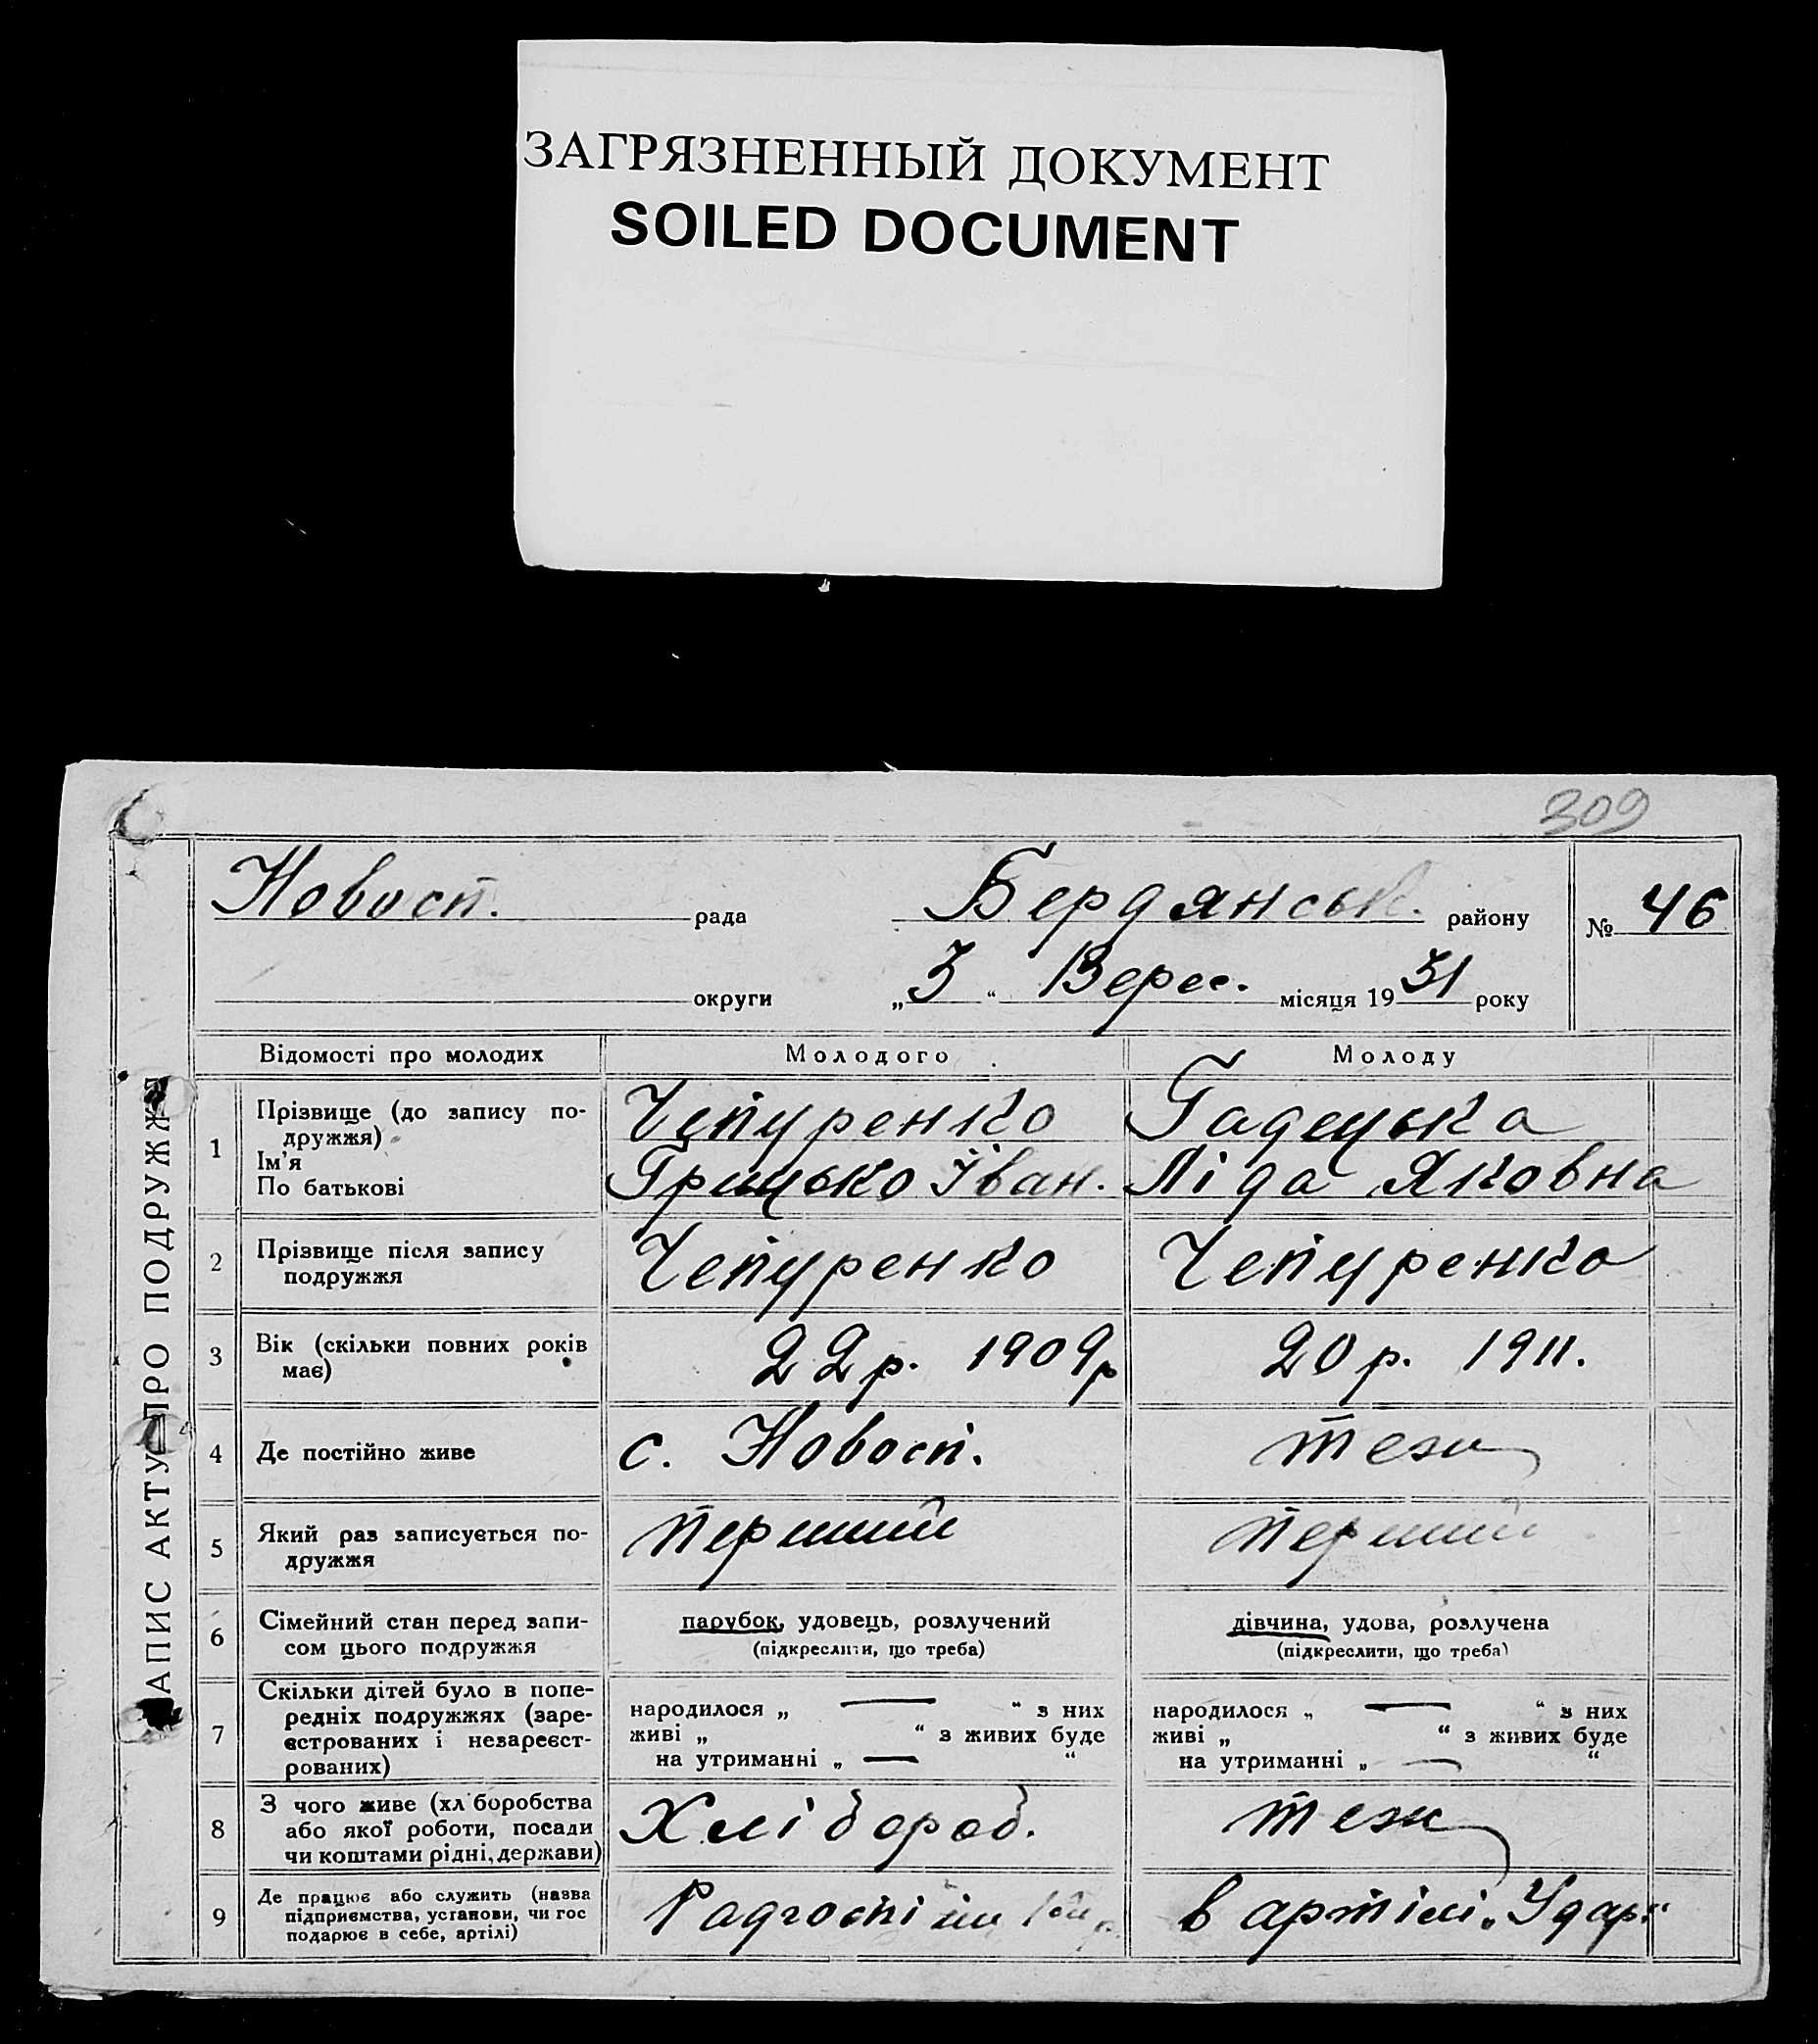 ЗАГРЯЗНЕННЫЙ ДОКУМЕНТ
SOILED DOCUMENT
309
Новосп. рада Бердянськ. району № 46
округи „3“ Верес. місяця 1931 року
АПИС АКТУ ПРО ПОДРУЖЖЯ
Відомості про молодих Молодого Молоду
1 Прізвище (до запису по-
дружжя)
Ім'я
По батькові
Чепуренко
Грицько Іван.
Гадецька
Ліда Яковна
2 Прізвище після запису
подружжя
Чепуренко Чепуренко
3 Вік (скільки повних років
має)
22 р. 1909 р 20 р. 1911.
4 Де постійно живе с. Новосп. теж
5 Який раз записується по-
дружжя
перший перший
6 Сімейний стан перед запи-
сом цього подружжя
парубок, удовець, розлучений
(підкреслити, що треба)
дівчина, удова, розлучена
(підкреслити, що треба)
7 Скільки дітей було в попе-
редніх подружжях (заре-
єстрованих і незареєст-
рованих)
народилося „ — “ з них
живі „ “ з живих буде
на утриманні „ — “
народилося „ — “ з них
живі „ “ з живих буде
на утриманні „ — “
8 З чого живе (хл боробства
або якої роботи, посади
чи коштами рідні, держави)
Хлібороб. теж
9 Де працює або служить (назва
підприємства, установи, чи гос
подарює в себе, артілі)
Радгоспі ім в артілі „Удар.“